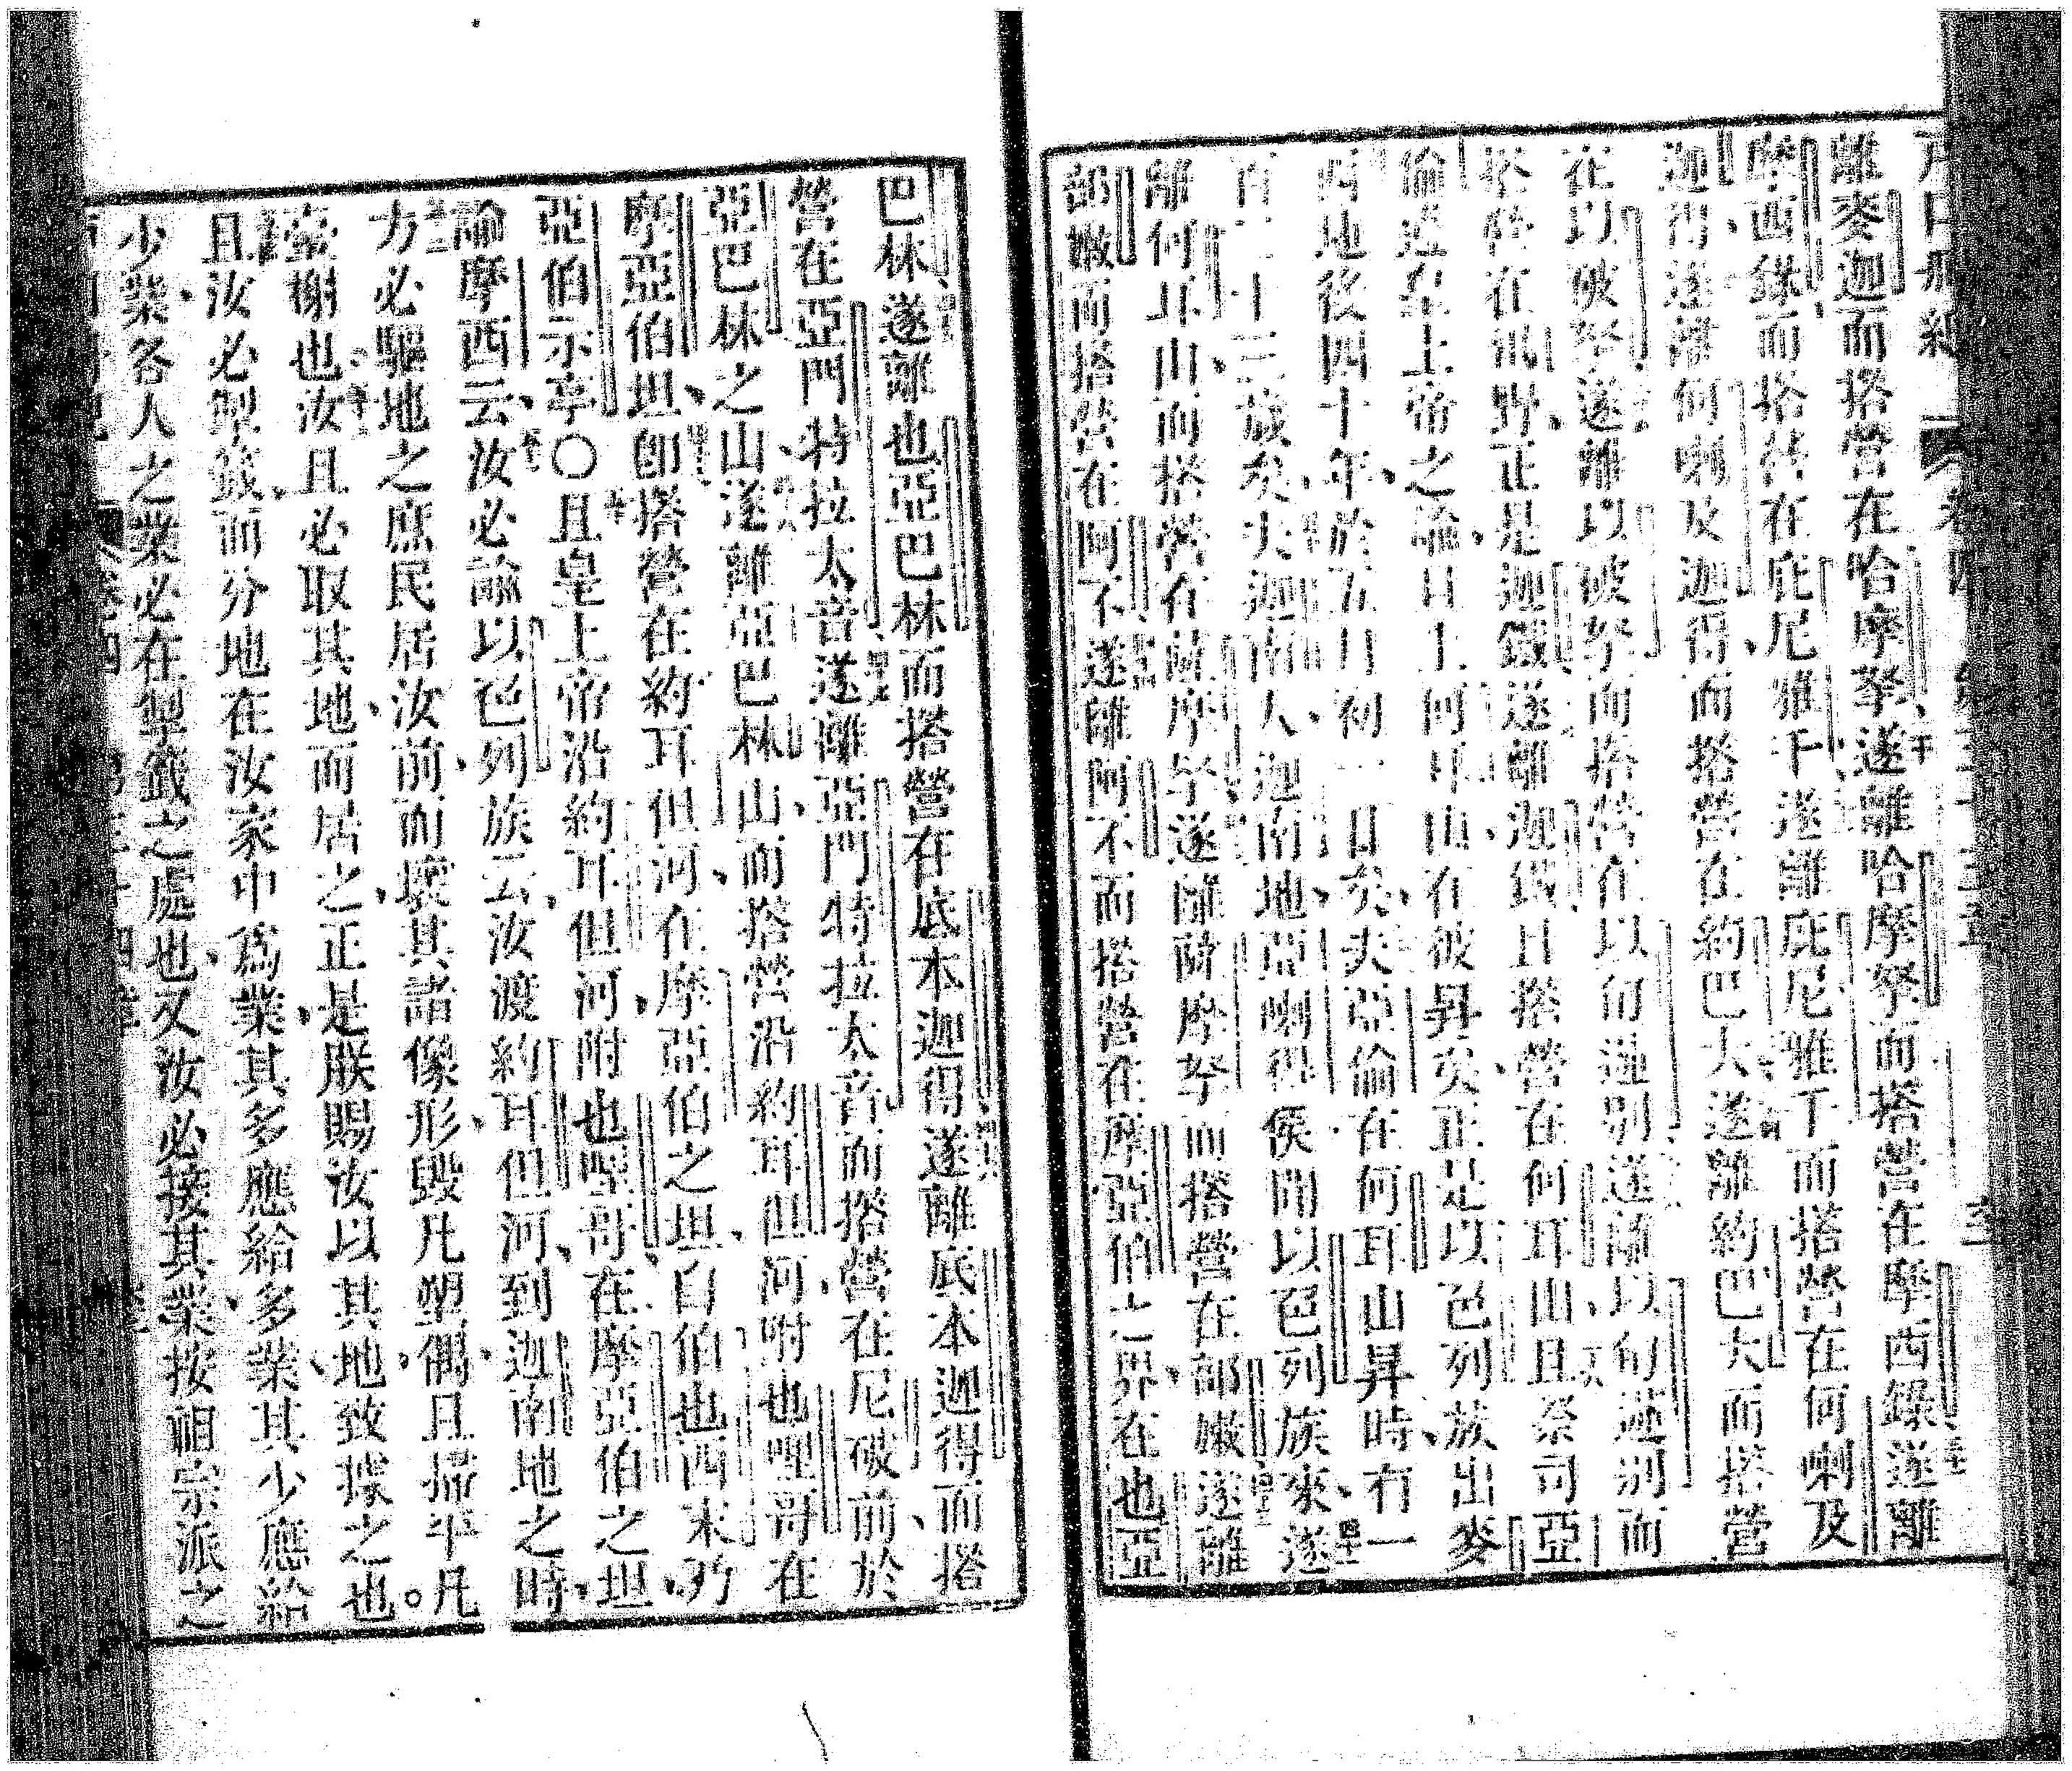 離麥迦而搭營在哈摩拏遂離哈摩拏而搭營在摩西錄遂離
摩西錄而搭營在庇尼雅干遂離庇尼雅干而搭營在何喇及
迦得遂離何喇及迦得而搭營在約巴大遂離約巴大而搭營
在以破拏遂離以破拏而搭營在以旬遮別遂離以旬遮別而
搭營在汛野正是迦鐵遂離迦鐵且搭營在何耳山且祭司亞
倫遵至上帝之命且上何耳山在彼昇矣正是以色列族出麥
西地後四十年於五月初一日矣夫亞倫在何耳山昇時有一
百二十三歲矣夫迦南人迦南地亞喇得侯聞以色列族來遂
離何耳山而搭營在薩摩拏遂離薩摩拏而搭營在部嫩遂離
部嫩而搭營在阿不遂離阿不而搭營在摩亞伯之界在也亞
巴林遂離也亞巴林而搭營在底本迦得遂離底本迦得而搭
營在亞門特拉太音遂離亞門特拉太音而搭營在尼破前於
亞巴林之山遂離亞巴林山而搭營沿約耳但河附也哩哥在
摩亞伯坦卽搭營在約耳但河在摩亞伯之坦自伯也西末乃
亞伯示亭〇且皇上帝沿約耳但河附也哩哥在摩亞伯之坦
諭摩西云汝必諭以色列族云汝渡約耳但河到迦南地之時
方必驅地之庶民居汝前而壞其諸像形毀凡塑偶且掃平凡
臺榭也汝且必取其地而居之正是朕賜汝以其地致據之也
且汝必掣籤而分地在汝家中爲業其多應給多業其少應給
少業各人之業必在掣籤之處也又汝必接其業按祖宗派之